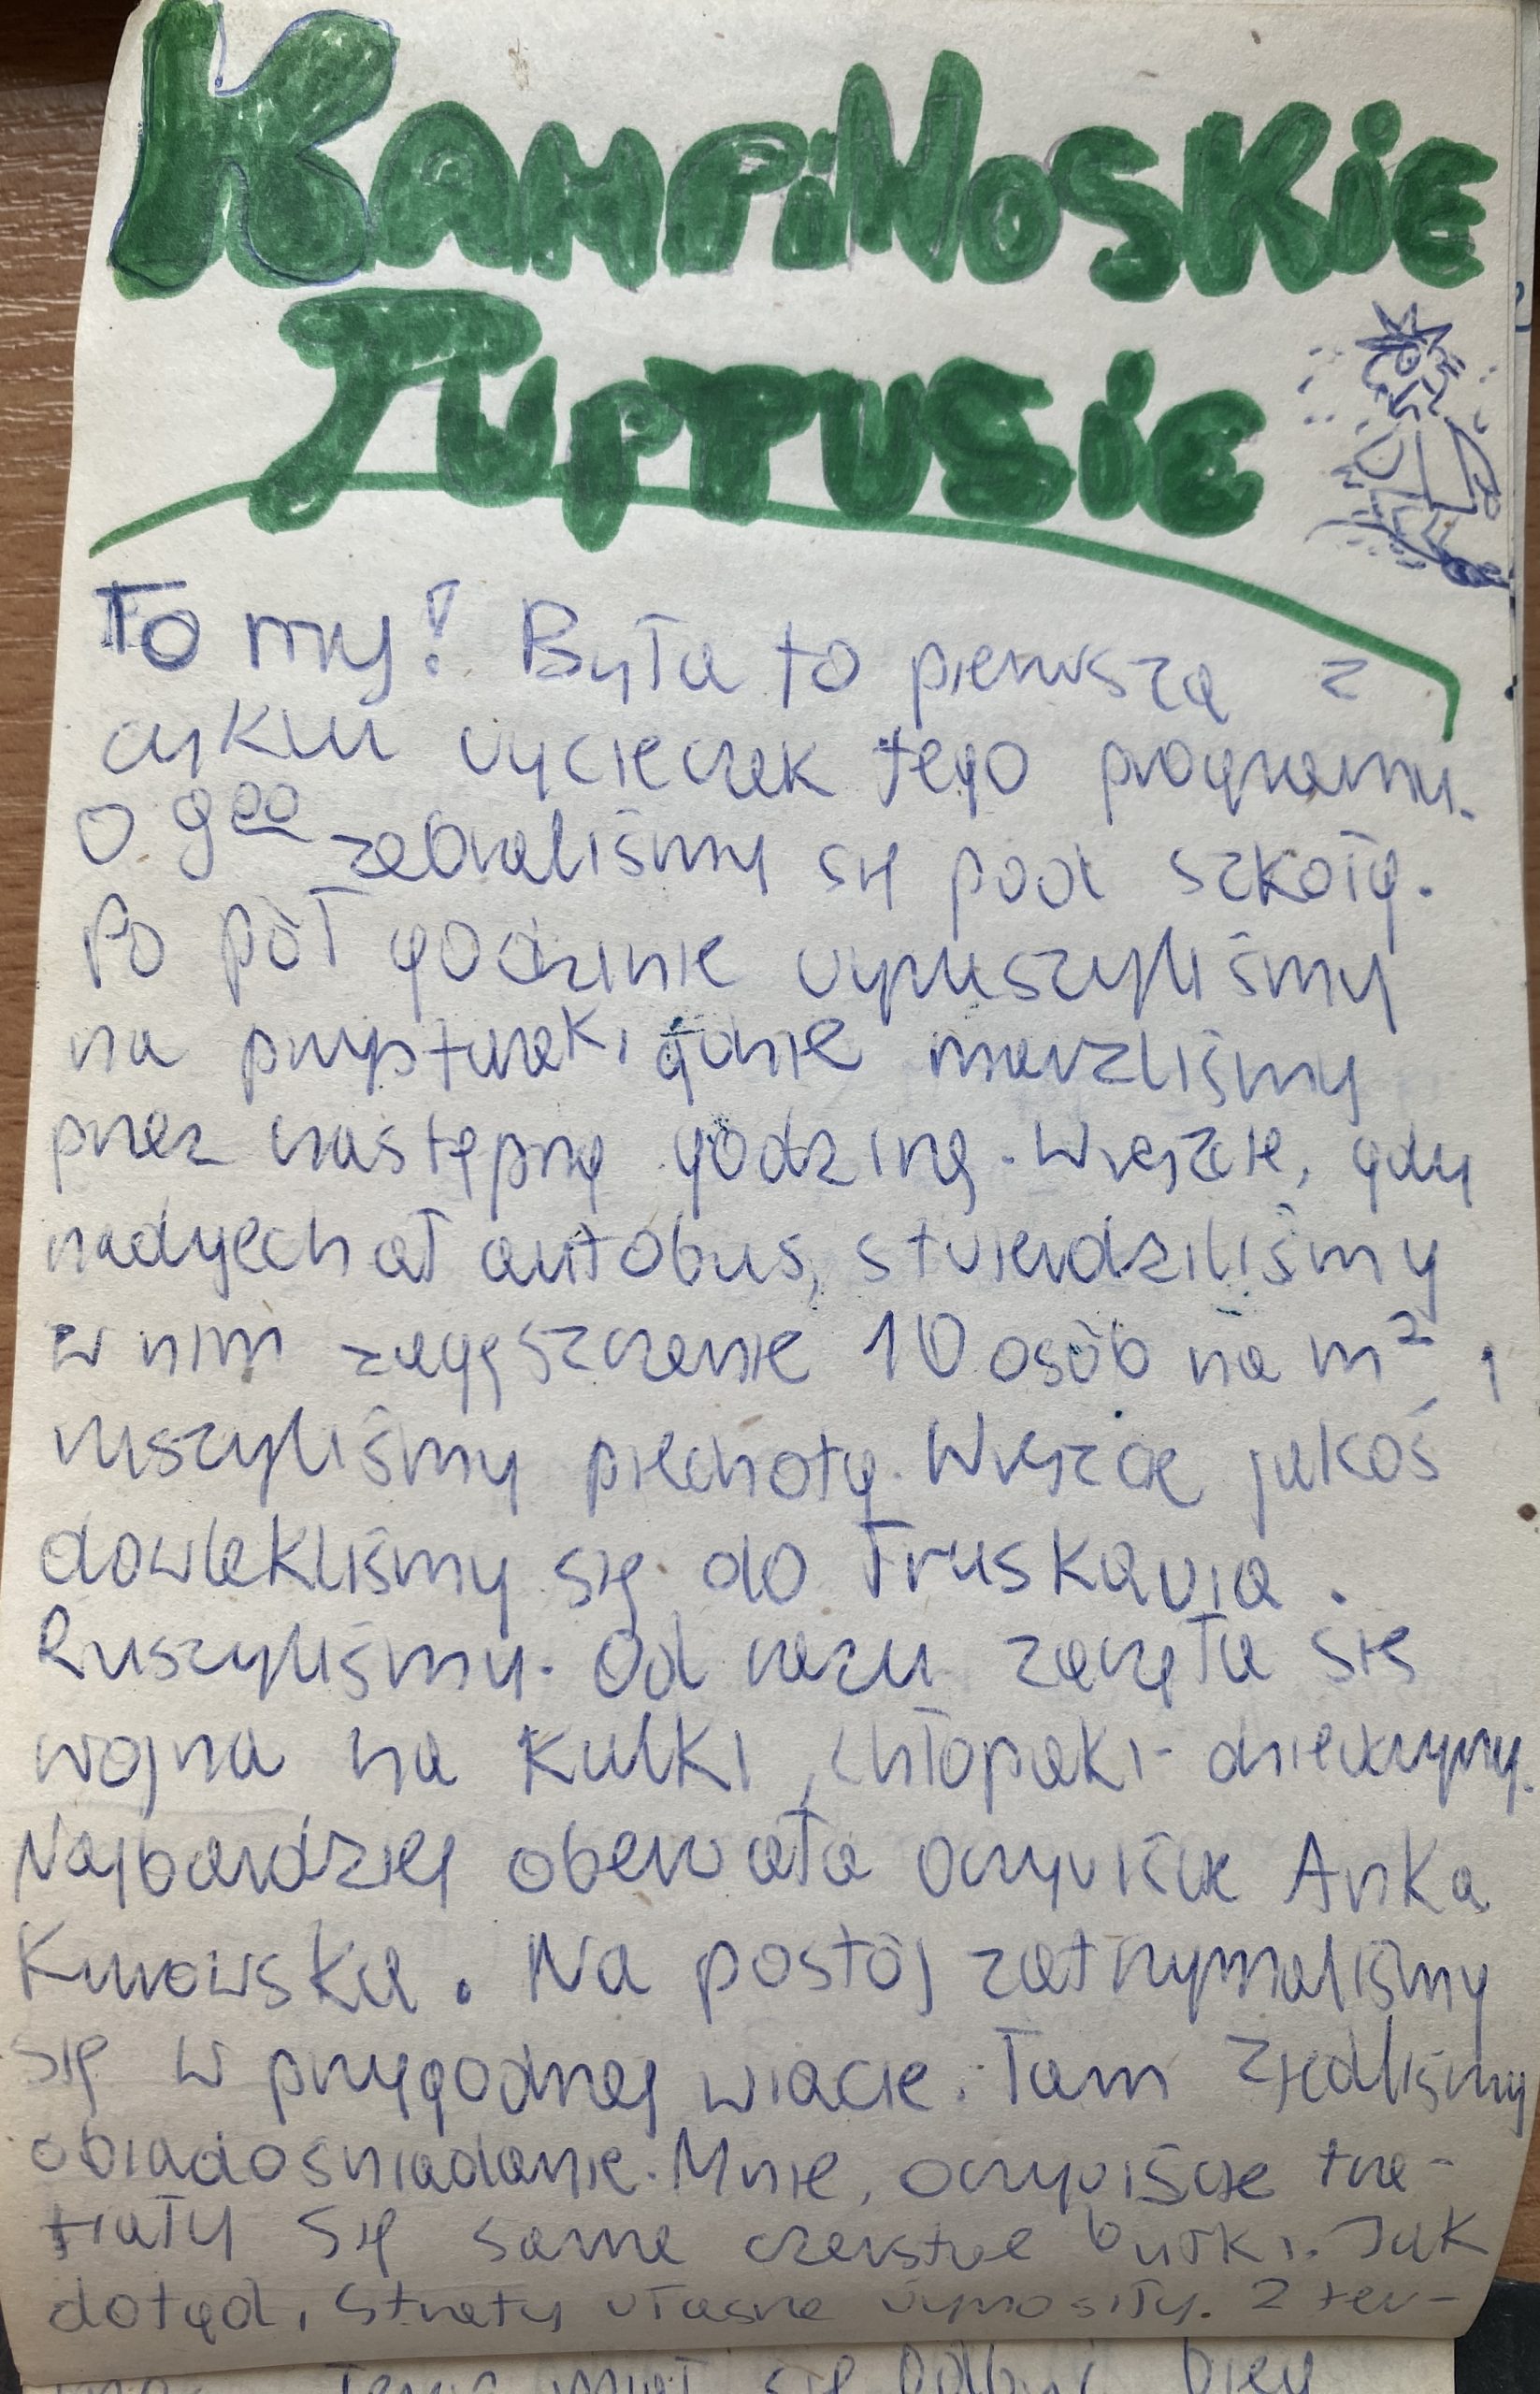 KAMPiNoSKiE
TUPTUSiE
To my! Była to pierwszą z
cyklu wycieczek tego programu.
O 9⁰⁰ zebraliśmy się pod szkołą.
Po pół godzinie wyruszyliśmy
na przystanek, gdzie marzliśmy
przez następną godzinę. Wreszcie, gdy
nadjechał autobus, stwierdziliśmy
w nim zagęszczenie 10 osób na m², i
ruszyliśmy piechotą. Wreszcie jakoś
dowlekliśmy się do Truskawia.
Ruszyliśmy. Od razu zaczęła się
wojna na kulki, chłopaki-dziewczyny.
Najbardziej oberwała oczywiście Anka
Kurowska. Na postój zatrzymaliśmy
się w przygodnej wiacie. Tam zjedliśmy
obiadośniadanie. Mnie, oczywiście tra-
fiały się same czerstwe bułki. Jak
dotąd, straty własne wynosiły. 2 ter-
się odbyć bieg